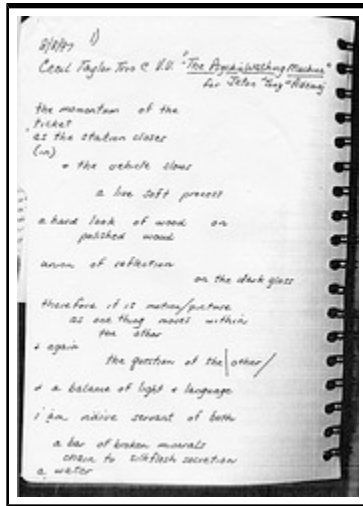 8/8/87 1)
Cecil Taylor Trio @ V.V. "The Psychic Washing Machine"
for "Tony"
the momentum of the
ticket
as the station closes
(in)
+ the vehicle slows
a live soft process
a hard look of wood on
polished wood
union of reflection
on the dark glass
therefore it is motion/picture
as one thing moves within
the other
+ again
the question of the \other/
+ a balance of light + language
i am naive servant of both
a bar of broken minerals
chain to silkflesh secretion
a water